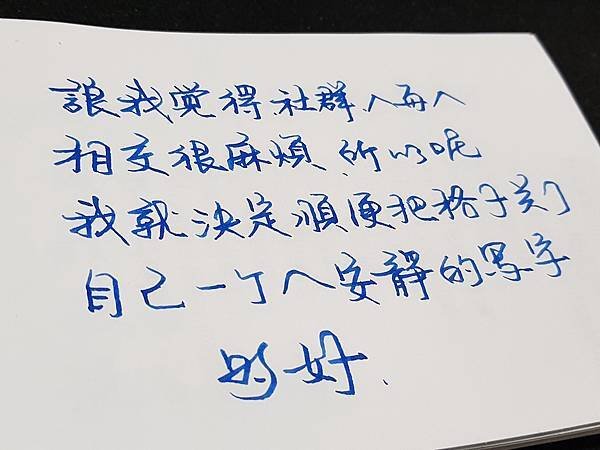 讓我觉得社群人 人
相交很麻煩,所以呢
我就決定順便把格子关了
自己一个人安靜的寫字
好.